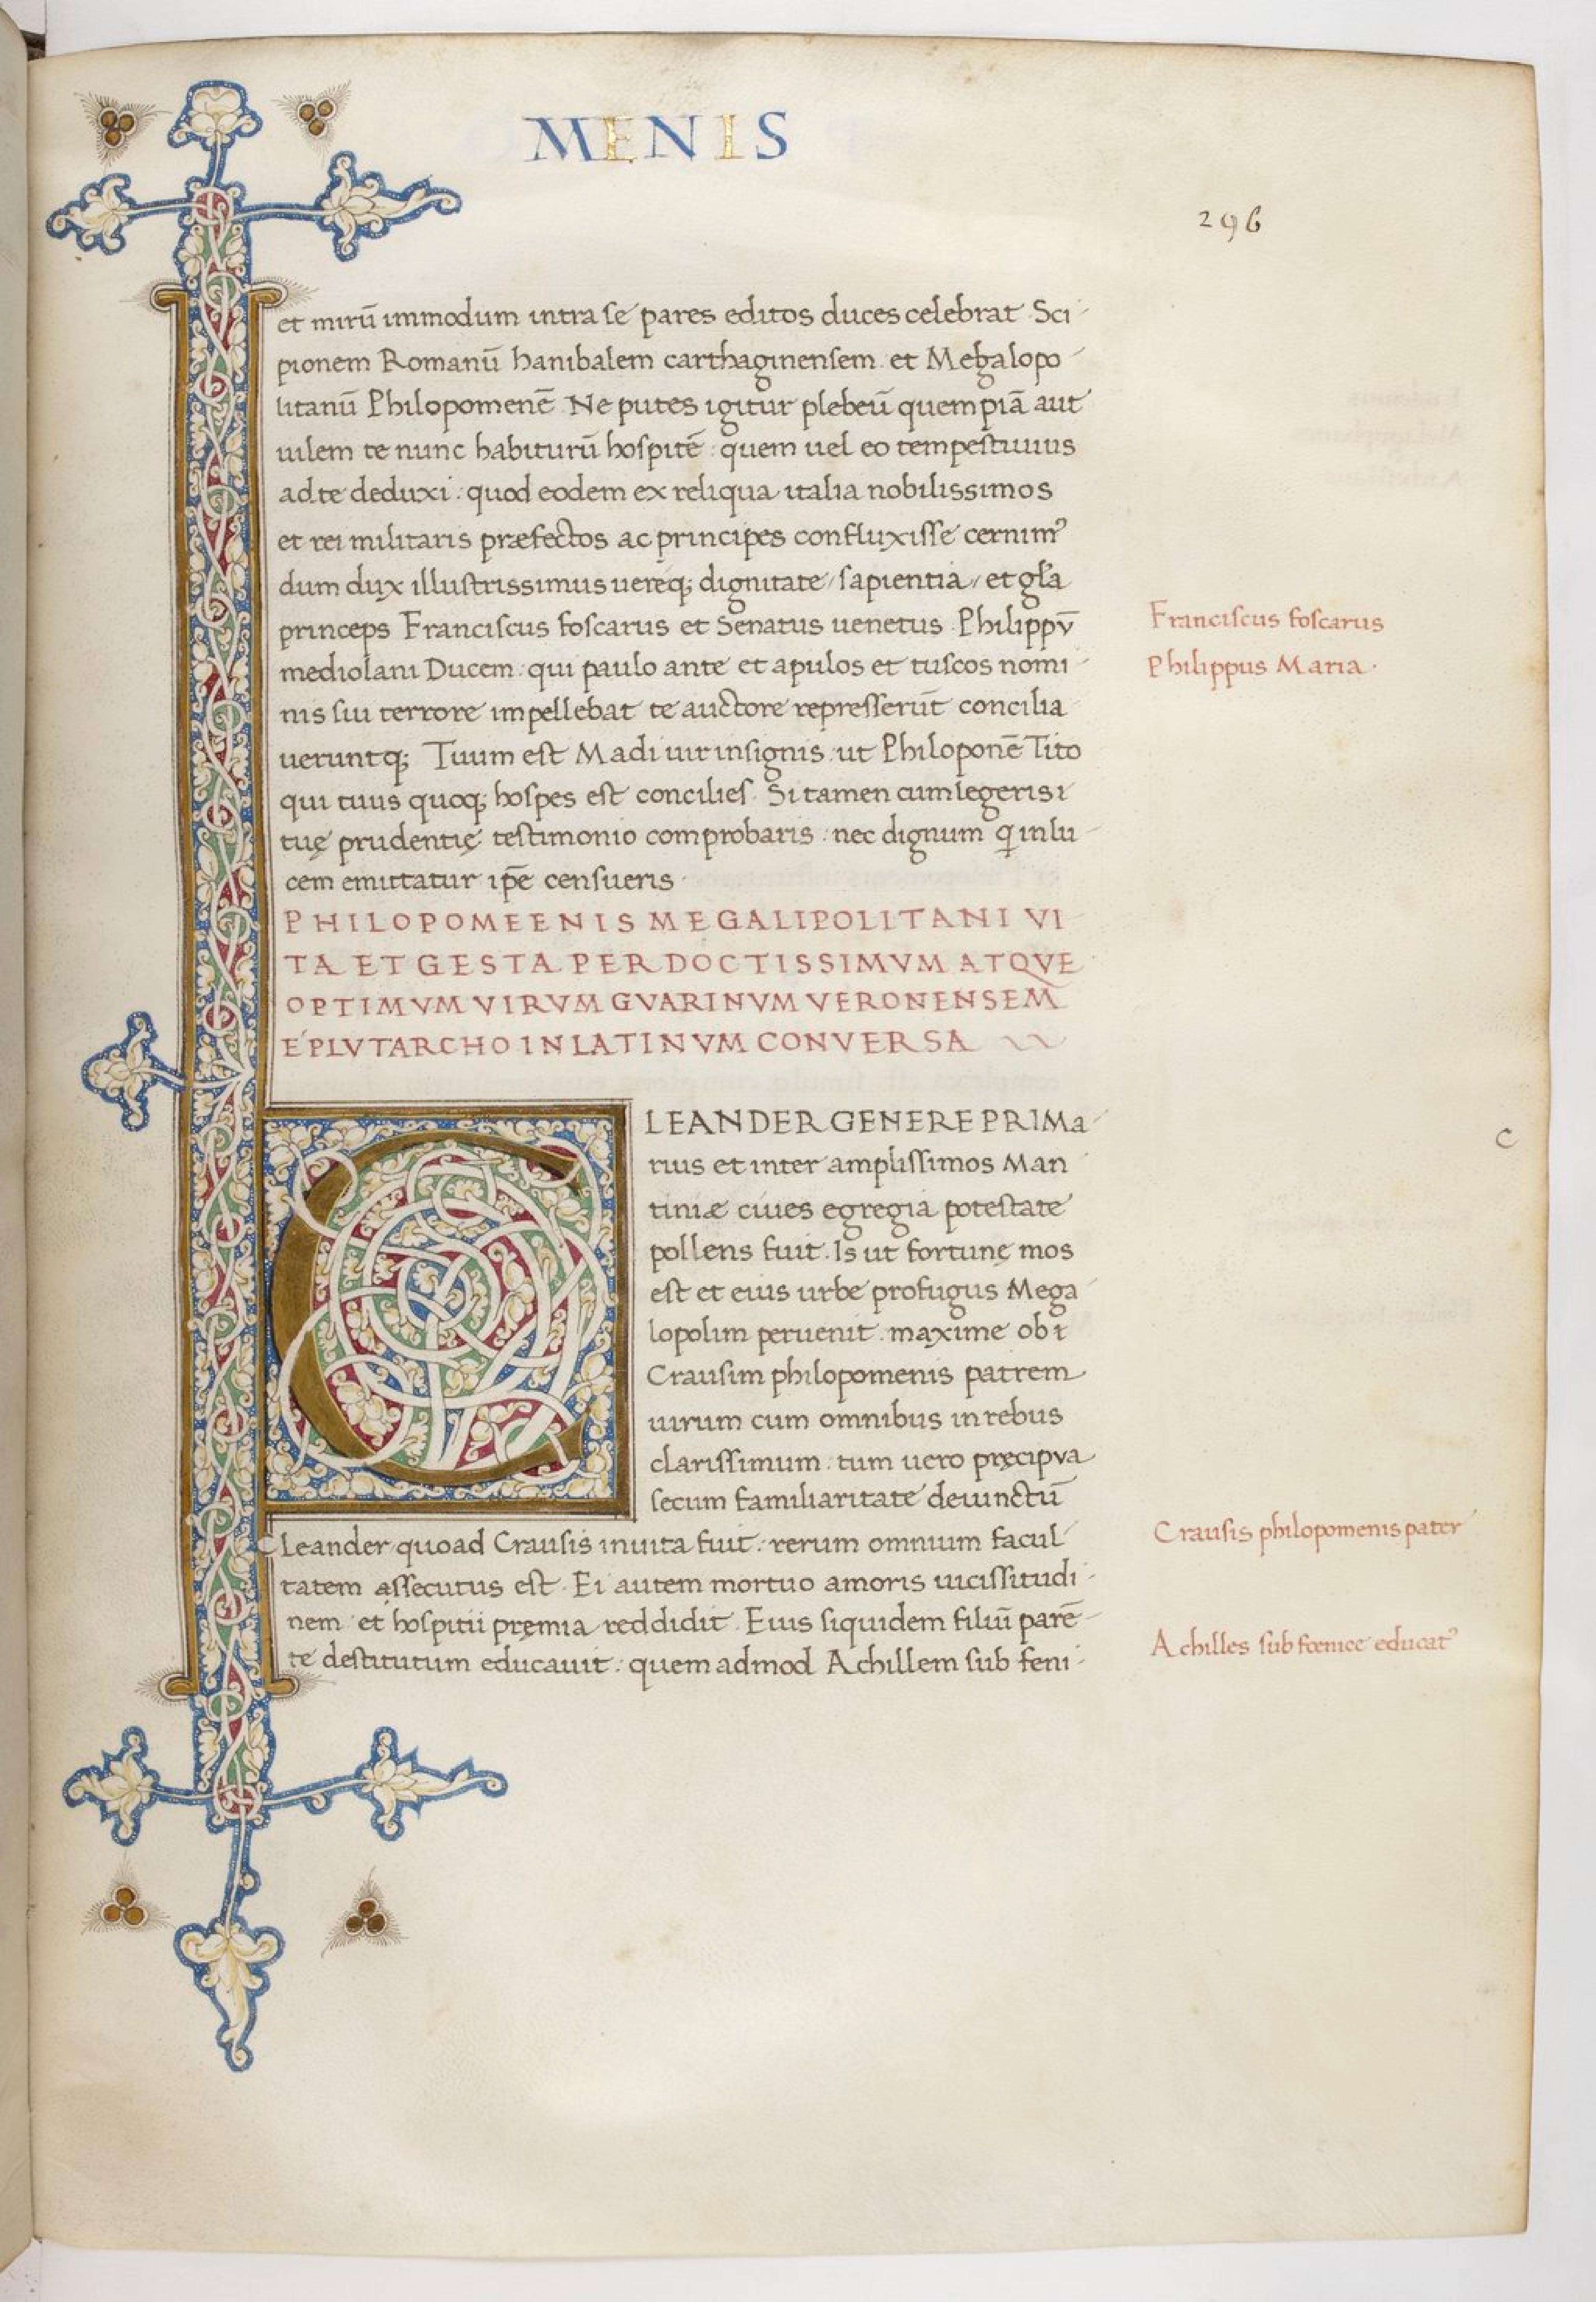 MENIS
296
et mirū immodum intra se pares editos duces celebrat Sci-
pionem Romanū hanibalem carthaginensem et Megalopo-
litanū Philopomenē Ne putes igitur plebeū quempiā aut
uilem te nunc habiturū hospitē: quem uel eo tempestiuius
ad te deduxi: quod eodem ex reliqua italia nobilissimos
et rei militaris præfectos ac principes confluxisse cernimꝰ
dum dux illustrissimus uereq; dignitate/sapientia/et gła
princeps Franciscus foscarus et Senatus uenetus Philippv̄
Franciscus foscarus
mediolani Ducem: qui paulo ante et apulos et tuscos nomi-
Philippus Maria.
nis sui terrore impellebat te auctore represserūt concilia
uerunt q; Tuum est Madi uir insignis ut Philoponē Tito
qui tuus quoq; hospes est concilies. Si tamen cum legeris
tuę prudentię testimonio comprobaris: nec dignum ꝙ in lu-
cem emittatur ip̄e censueris.
PHILOPOMEENIS MEGALIPOLITANI VI
TA ET GESTA PER DOCTISSIMVM ATQVE
OPTIMVM VIRVM GVARINVM VERONENSEM
E PLVTARCHO IN LATINVM CONVERSA
CLEANDER GENERE PRIMa-
rius et inter amplissimos Man
tiniæ ciues egregia potestate
pollens fuit. Is ut fortunę mos
est et eius urbe profugus Mega
lopolim peruenit maxime ob
Crausim philopomenis patrem
uirum cum omnibus in rebus
clarissimum: tum uero pręcipva
secum familiaritate deuinctū
Cleander quoad Crausis inuita fuit: rerum omnium facul
Crausis philopomenis pater
tatem assecutus est. Ei autem mortuo amoris uicissitudi-
nem et hospitii pręmia reddidit. Eius siquidem filiū parē-
te destitutum educauit: quem admod Achillem sub feni-
Achilles sub fœnice educatꝰ
c